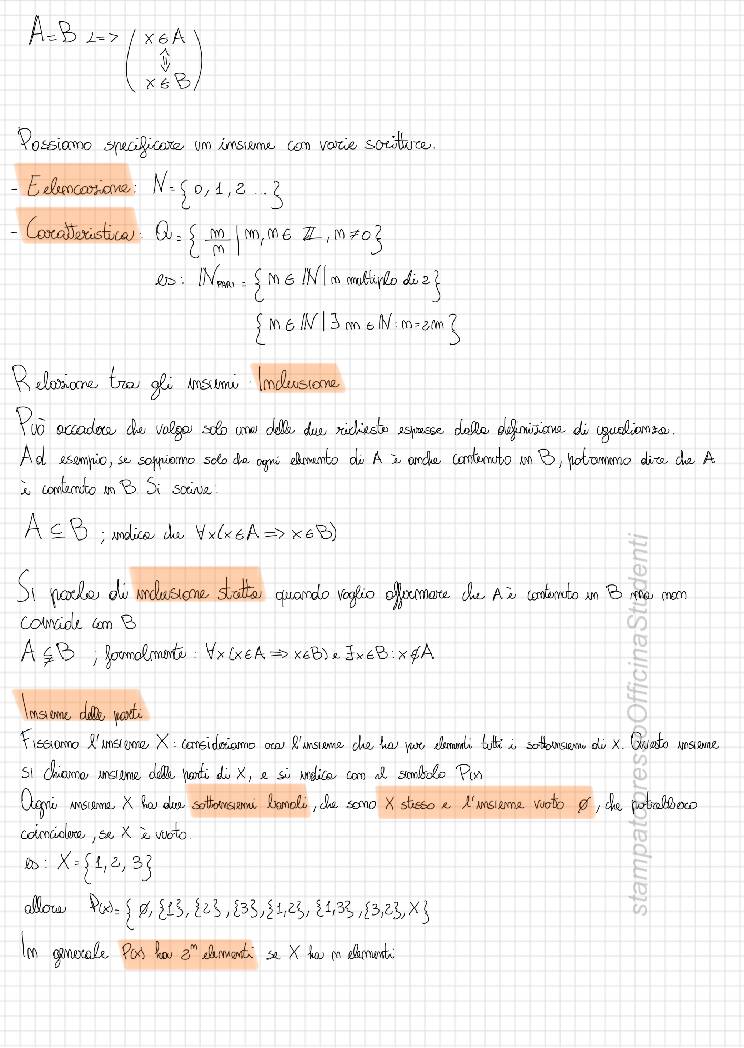 A=B <=> ( x∈A
⇕
x∈B )
Possiamo specificare un insieme con varie scritture.
- Eelencazione: N={0,1,2...}
- Caratteristica: Q={ m/n | m,n∈ ℤ, n≠0}
es: ℕPARI = { n∈ℕ | n multiplo di 2}
{ n∈ℕ | ∃ m∈ℕ: n=2m }
Relazione tra gli insiemi: Inclusione
Può accadere che valga solo una delle due richieste espresse dalla definizione di uguaglianza.
Ad esempio, se sappiamo solo che ogni elemento di A è anche contenuto in B, potremmo dire che A
è contenuto in B Si scrive:
A ⊆ B ; indica che ∀x(x∈A => x∈B)
Si parla di inclusione stretta quando voglio affermare che A è contenuto in B ma non
coincide con B
A ⊊ B ; formalmente: ∀x(x∈A => x∈B) e ∃x∈B: x∉A
Insieme delle parti
Fissiamo l'insieme X: consideriamo ora l'insieme che ha per elementi tutti i sottoinsiemi di X. Questo insieme
si chiama insieme delle parti di X, e si indica con il simbolo P(x)
Ogni insieme X ha due sottoinsiemi banali, che sono X stesso e l'insieme vuoto ∅, che potrebbero
coincidere, se X è vuoto.
es: X={1,2,3}
allora P(x)={ ∅,{1},{2},{3},{1,2},{1,3},{3,2},X}
In generale P(x) ha 2ⁿ elementi se X ha n elementi
stampatopressoOfficinaStudenti